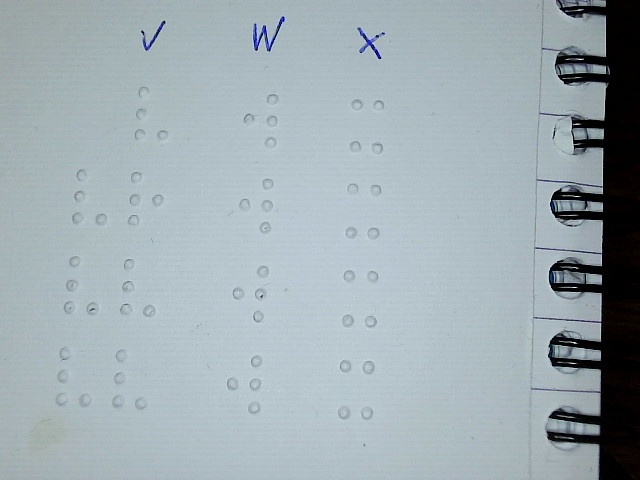 V W X
⠧ ⠺ ⠭
⠧ ⠗ ⠺ ⠭
⠧ ⠧ ⠺ ⠭
⠧ ⠧ ⠺ ⠭